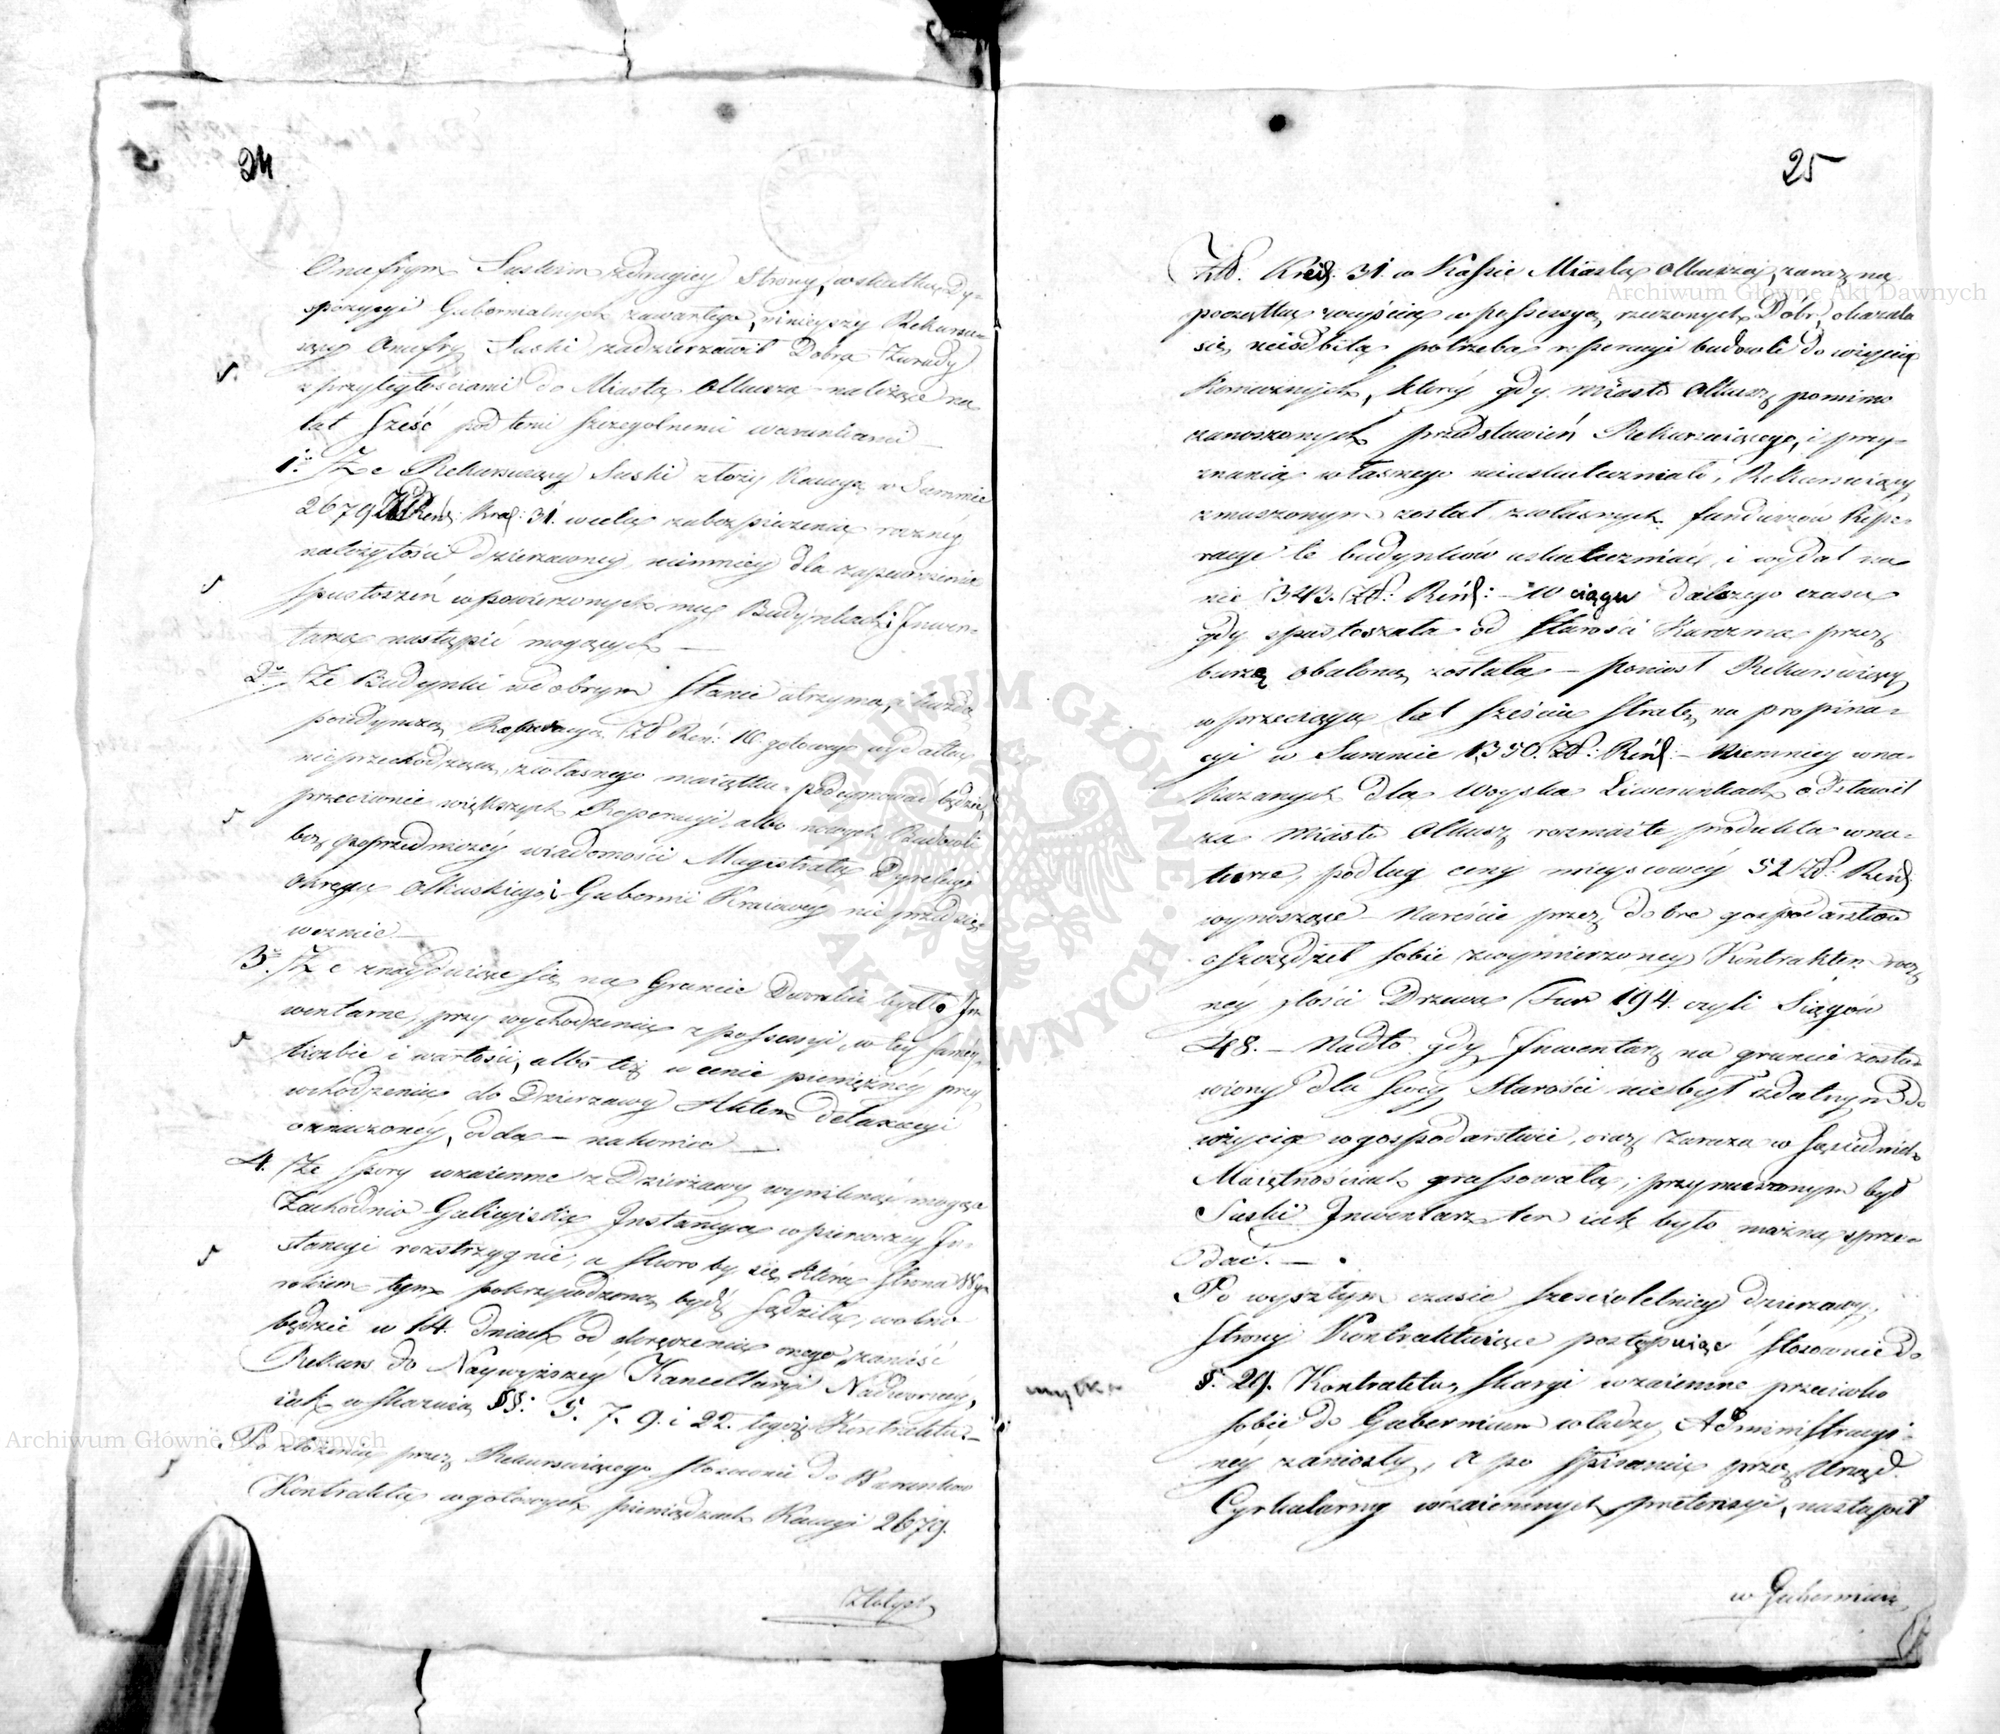 24
Onufrym Suskim z drugiey strony, w skutku Dy-
spozycyi Gubernialnych zawartego, ninieyszy Rekursu-
iący Onufry Suski zadzierzawił Dobra Żurady
z przyległościami do Miasta Olkusza należące na
lat sześć pod temi szczególnemi warunkami —
1o Że Rekursuiący Suski złoży Kaucyą w Summie
2679 Zł Reń: Kraj: 31. w celu zabezpieczenia roczney
należytości dzierzawney, niemniey dla zapewnienia
spustoszeń w powierzonych mu Budynkach i Inwen-
tarzu nastąpić mogących —
2o Że Budynki w dobrym stanie utrzyma, i każdą
poiedynczą Reperacyą Zł Reń: 10 gotowego wydatku
nieprzechodzącą, z własnego maiątku podeymować będzie,
przeciwnie większych Reperacyi albo nowych Budowli
bez poprzedniczey wiadomości Magistratu Dyrekcyi
Okręgu Olkuskiego i Gubernii Kraiowey nie przedsię-
weźmie —
3o Że znayduiące się na Gruncie Dworskie bydło In-
wentarne, przy wychodzeniu z possessyi, w tey samey
liczbie i wartości, albo też w cenie pieniężney przy
wchodzeniu do Dzierzawy Aktem detaxacyi
oznaczoney, odda — nakoniec —
4. Że spory wzaiemne z Dzierzawy wyniknąć mogące
Zachodnio Galicyiska Instancya w pierwszey In-
stancyi rozstrzygnie, a skoro by się która strona Wy-
rokiem tym pokrzywdzoną bydź sądziła, wolno
będzie w 14. dniach od doręczenia onego zanieść
Rekurs do Naywyższey Kancellaryi Nadworney,
iak wskazuią §§: 5. 7. 9. i 22. tegoż Kontraktu. —
Po złożeniu przez Rekursuiącego stosownie do Warunków
Kontraktu w gotowych pieniądzach Kaucyi 2679.
Złotych
25
Zł: Kreü: 31. w Kassie Miasta Olkusza, zaraz na
początku weyścia w possessyą rzeczonych Dóbr, okazała
się nieodbita potrzeba reperacyi budowli do użycia
koniecznych, którą gdy Miasto Olkusz pomimo
zanoszonych przedstawień Rekursuiącego, i przy-
znania własnego nieuskuteczniało, Rekursuiący
zmuszonym został z własnych funduszów Repe-
racye te budynków uskuteczniać, i wydał na
nie 343. Zł: Reń: — W ciągu dalszego czasu
gdy spustoszała od starości Karczma przez
burzę obaloną została — poniosł Rekursuiący
w przeciągu lat sześciu stratę na propina-
cyi w Summie 1350. Zł: Reń: — Niemniey w na-
kazanych dla Woyska Liwerunkach odstawił
za Miasto Olkusz rozmaite produkta w na-
turze, podług ceny mieyscowey 52 Zł: Reń:
wynoszące — Nareście przez dobre gospodarstwo
oszczędził sobie z wymierzoney Kontraktem rocz-
ney ilości Drzewa Fur 194. czyli Siągów
48. — Nadto gdy Inwentarz na gruncie zosta-
wiony dla swey starości nie był zdatnym do
użycia w gospodarstwie, oraz zaraza w sąsiednich
Maiętnościach grassowała, przymuszonym był
Suski Inwentarz ten iak było można sprze-
dać. —
Po wyszłym czasie sześcioletniey dzierzawy,
strony Kontraktuiące postępuiąc stosownie do
§. 29. Kontraktu, skargi wzaiemne przeciwko
sobie do Gubernium władzy Administracyi-
ney zaniosły, a po spisaniu przez Urząd
Cyrkularny wzaiemnych pretensyi, nastąpił
w Gubernium
Archiwum Główne Akt Dawnych
Archiwum Główne Akt Dawnych
ARCHIWUM GŁÓWNE AKT DAWNYCH